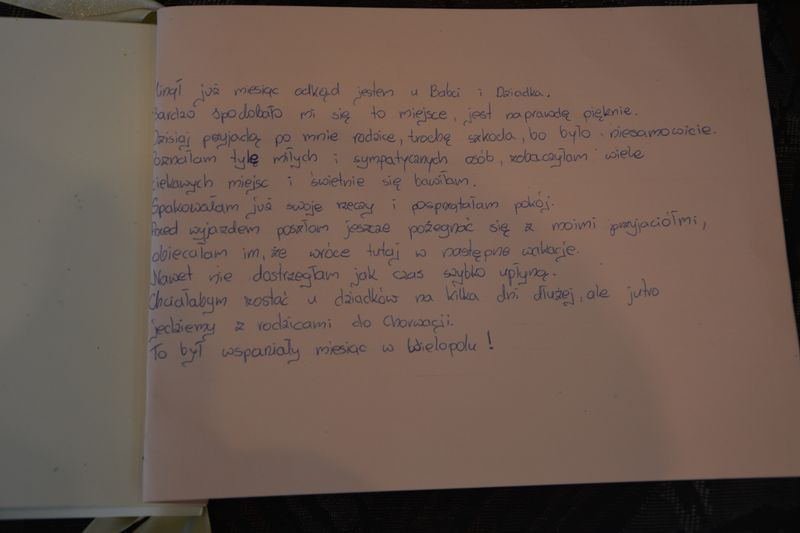 Minął już miesiąc odkąd jestem u Babci i Dziadka.
Bardzo spodobało mi się to miejsce, jest naprawdę pięknie.
Dzisiaj przyjadą po mnie rodzice, trochę szkoda, bo było niesamowicie.
Poznałam tylę miłych i sympatycznych osób, zobaczyłam wiele
ciekawych miejsc i świetnie się bawiłam.
Spakowałam już swoje rzeczy i posprzątałam pokój.
Przed wyjazdem poszłam jeszcze pożegnać się z moimi przyjaciółmi,
obiecałam im, że wrócę tutaj w następne wakacje.
Nawet nie dostrzegłam jak czas szybko upłyną.
Chciałabym zostać u dziadków na kilka dni dłużej, ale jutro
jedziemy z rodzicami do Chorwacji.
To był wspaniały miesiąc w Wielopolu!